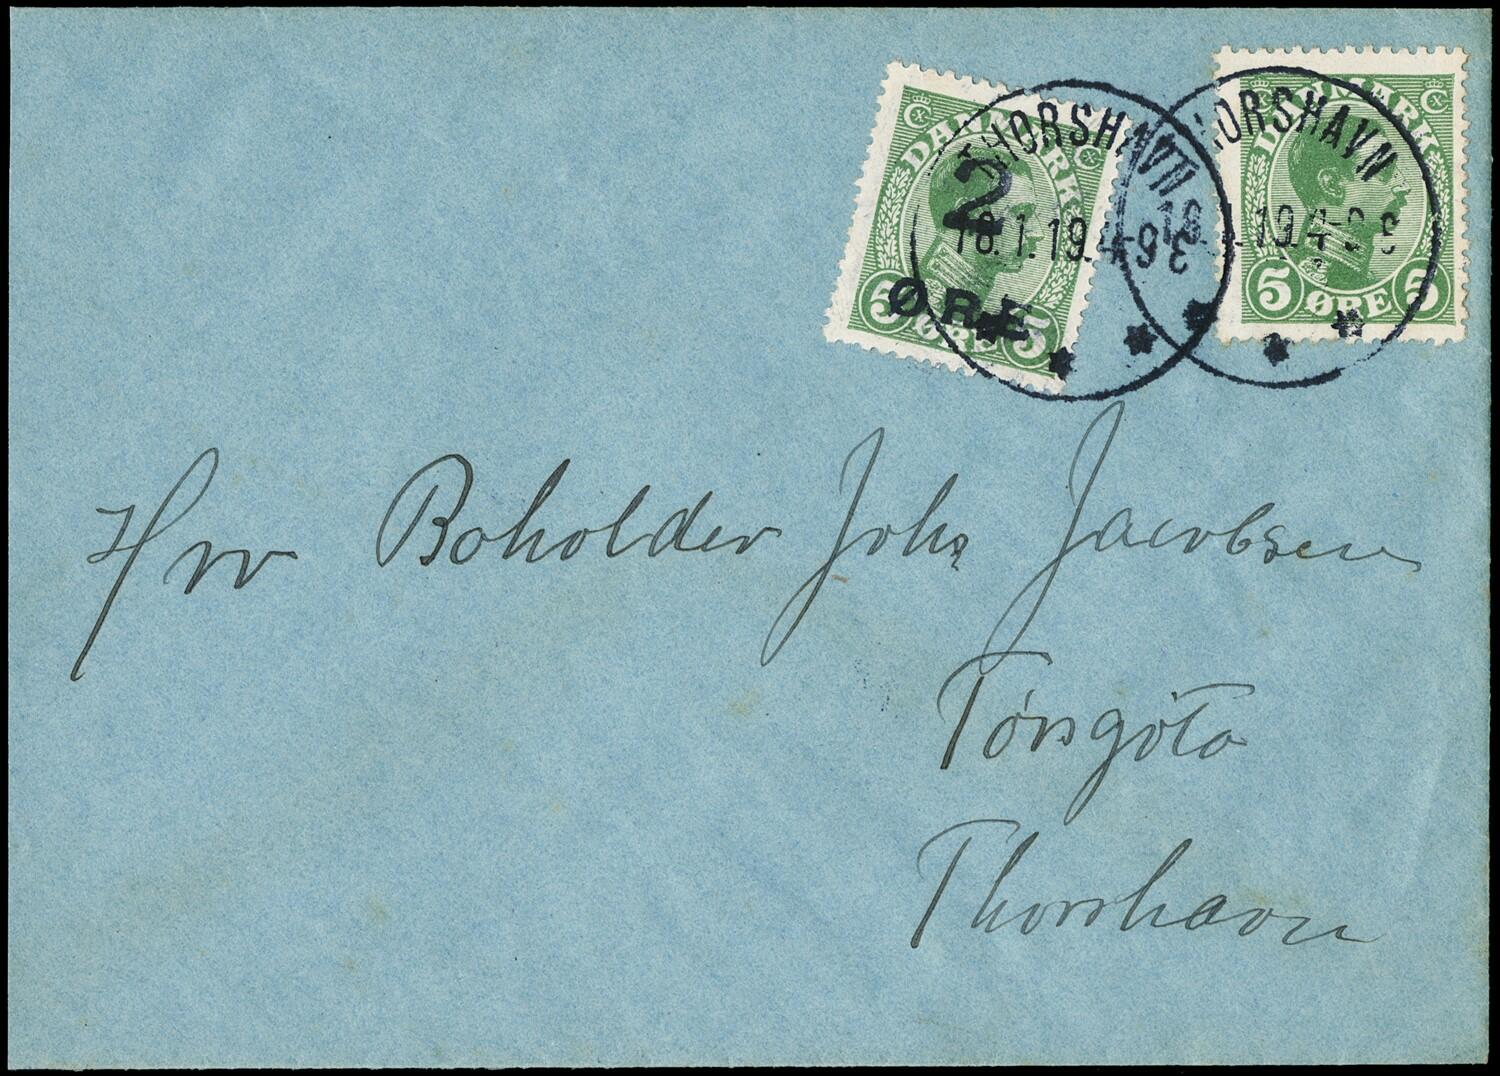 DANMARK
5 ØRE 5
2
ØRE
THORSHAVN
18.1.19. 4-9 E
DANMARK
5 ØRE 5
THORSHAVN
18.1.19. 4-9 E
Hrr Boholder Johs Jacobsen
Tórsgöta
Thorshavn